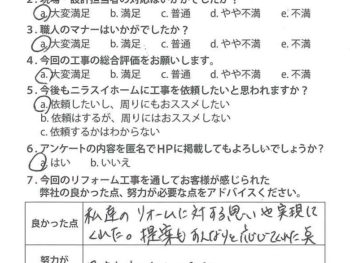 2. 現場・設計担当者の対応はいかがでしたか?
a. 大変満足 b. 満足 c. 普通 d. やや不満 e. 不満
3. 職人のマナーはいかがでしたか?
a. 大変満足 b. 満足 c. 普通 d. やや不満 e. 不満
4. 今回の工事の総合評価をお願いします。
a. 大変満足 b. 満足 c. 普通 d. やや不満 e. 不満
5. 今後もニラスイホームに工事を依頼したいと思われますか?
a. 依頼したいし、周りにもおススメしたい
b. 依頼はするが、周りにはおススメしない
c. 依頼するかはわからない
6. アンケートの内容を匿名でHPに掲載してもよろしいでしょうか?
a. はい b. いいえ
7. 今回のリフォーム工事を通してお客様が感じられた
弊社の良かった点、努力が必要な点をアドバイスください。
良かった点
私達のリフォームに対する思いや実現に
くれた。提案も すんなりと応じてくれた点
努力が